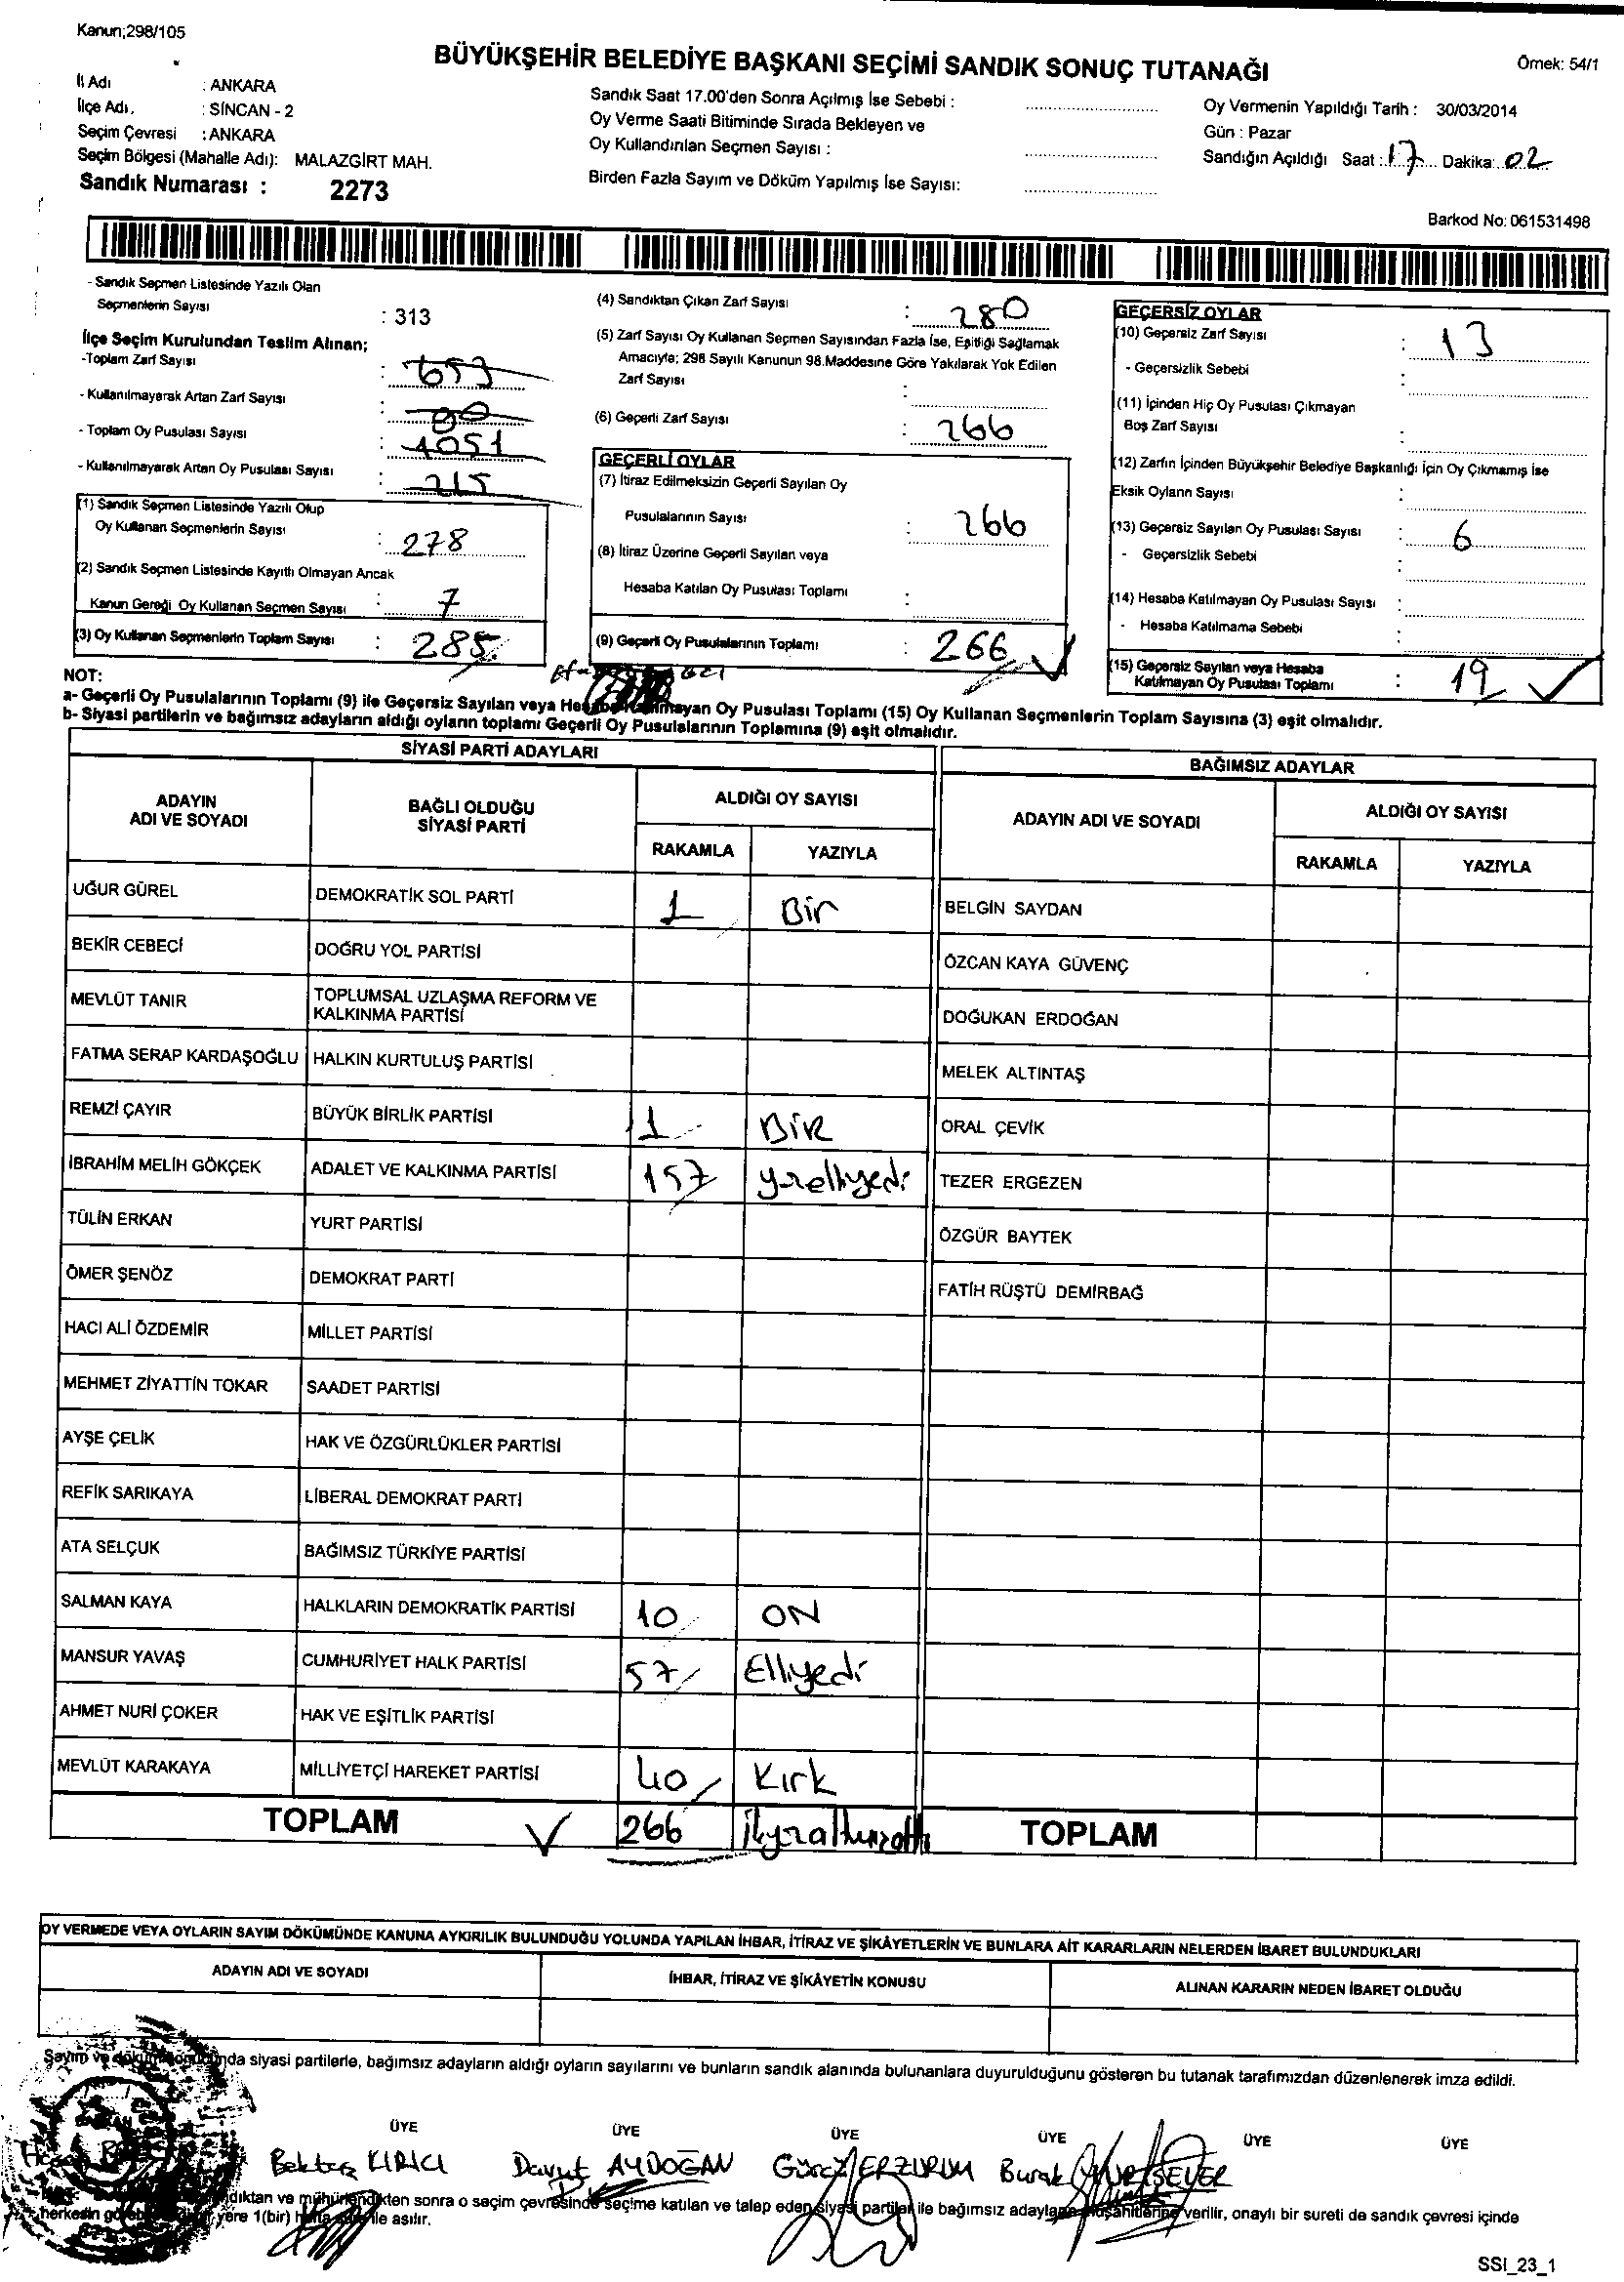 Kanun;298/105
BÜYÜKŞEHİR BELEDİYE BAŞKANI SEÇİMİ SANDIK SONUÇ TUTANAĞI
Örnek: 54/1
İl Adı : ANKARA
İlçe Adı. : SİNCAN - 2
Seçim Çevresi : ANKARA
Seçim Bölgesi (Mahalle Adı): MALAZGİRT MAH.
Sandık Numarası : 2273
Sandık Saat 17.00'den Sonra Açılmış İse Sebebi :
Oy Verme Saati Bitiminde Sırada Bekleyen ve
Oy Kullandırılan Seçmen Sayısı :
Birden Fazla Sayım ve Döküm Yapılmış İse Sayısı:
Oy Vermenin Yapıldığı Tarih : 30/03/2014
Gün : Pazar
Sandığın Açıldığı Saat : 17 Dakika: 02
Barkod No: 061531498
- Sandık Seçmen Listesinde Yazılı Olan
Seçmenlerin Sayısı : 313
İlçe Seçim Kurulundan Teslim Alınan;
-Toplam Zarf Sayısı : 653
- Kullanılmayarak Artan Zarf Sayısı :
- Toplam Oy Pusulası Sayısı : 1051
- Kullanılmayarak Artan Oy Pusulası Sayısı : 215
(1) Sandık Seçmen Listesinde Yazılı Olup
Oy Kullanan Seçmenlerin Sayısı : 278
(2) Sandık Seçmen Listesinde Kayıtlı Olmayan Ancak
Kanun Gereği Oy Kullanan Seçmen Sayısı : 7
(3) Oy Kullanan Seçmenlerin Toplam Sayısı : 285
(4) Sandıktan Çıkan Zarf Sayısı : 280
(5) Zarf Sayısı Oy Kullanan Seçmen Sayısından Fazla İse, Eşitliği Sağlamak
Amacıyle; 298 Sayılı Kanunun 98.Maddesine Göre Yakılarak Yok Edilen
Zarf Sayısı :
(6) Geçerli Zarf Sayısı : 266
GEÇERLİ OYLAR
(7) İtiraz Edilmeksizin Geçerli Sayılan Oy
Pusulalarının Sayısı : 266
(8) İtiraz Üzerine Geçerli Sayılan veya
Hesaba Katılan Oy Pusulası Toplamı :
(9) Geçerli Oy Pusulalarının Toplamı : 266
GEÇERSİZ OYLAR
(10) Geçersiz Zarf Sayısı : 13
- Geçersizlik Sebebi :
(11) İçinden Hiç Oy Pusulası Çıkmayan
Boş Zarf Sayısı :
(12) Zarfın İçinden Büyükşehir Belediye Başkanlığı İçin Oy Çıkmamış İse
Eksik Oyların Sayısı :
(13) Geçersiz Sayılan Oy Pusulası Sayısı : 6
- Geçersizlik Sebebi :
(14) Hesaba Katılmayan Oy Pusulası Sayısı :
- Hesaba Katılmama Sebebi :
(15) Geçersiz Sayılan veya Hesaba
Katılmayan Oy Pusulası Toplamı : 19
NOT:
a- Geçerli Oy Pusulalarının Toplamı (9) ile Geçersiz Sayılan veya Hesaba Katılmayan Oy Pusulası Toplamı (15) Oy Kullanan Seçmenlerin Toplam Sayısına (3) eşit olmalıdır.
b- Siyasi partilerin ve bağımsız adayların aldığı oyların toplamı Geçerli Oy Pusulalarının Toplamına (9) eşit olmalıdır.
SİYASİ PARTİ ADAYLARI
BAĞIMSIZ ADAYLAR
ADAYIN ADI VE SOYADI
BAĞLI OLDUĞU SİYASİ PARTİ
ALDIĞI OY SAYISI
RAKAMLA YAZIYLA
ADAYIN ADI VE SOYADI
ALDIĞI OY SAYISI
RAKAMLA YAZIYLA
UĞUR GÜREL DEMOKRATİK SOL PARTİ 1 Bir BELGİN SAYDAN
BEKİR CEBECİ DOĞRU YOL PARTİSİ ÖZCAN KAYA GÜVENÇ
MEVLÜT TANIR TOPLUMSAL UZLAŞMA REFORM VE KALKINMA PARTİSİ DOĞUKAN ERDOĞAN
FATMA SERAP KARDAŞOĞLU HALKIN KURTULUŞ PARTİSİ MELEK ALTINTAŞ
REMZİ ÇAYIR BÜYÜK BİRLİK PARTİSİ 1 BİR ORAL ÇEVİK
İBRAHİM MELİH GÖKÇEK ADALET VE KALKINMA PARTİSİ 157 yüzelliyedi TEZER ERGEZEN
TÜLİN ERKAN YURT PARTİSİ ÖZGÜR BAYTEK
ÖMER ŞENÖZ DEMOKRAT PARTİ FATİH RÜŞTÜ DEMİRBAĞ
HACI ALİ ÖZDEMİR MİLLET PARTİSİ
MEHMET ZİYATTİN TOKAR SAADET PARTİSİ
AYŞE ÇELİK HAK VE ÖZGÜRLÜKLER PARTİSİ
REFİK SARIKAYA LİBERAL DEMOKRAT PARTİ
ATA SELÇUK BAĞIMSIZ TÜRKİYE PARTİSİ
SALMAN KAYA HALKLARIN DEMOKRATİK PARTİSİ 10 ON
MANSUR YAVAŞ CUMHURİYET HALK PARTİSİ 57 Elliyedi
AHMET NURİ ÇOKER HAK VE EŞİTLİK PARTİSİ
MEVLÜT KARAKAYA MİLLİYETÇİ HAREKET PARTİSİ 40 Kırk
TOPLAM 266 ikiyüzaltmışaltı TOPLAM
OY VERMEDE VEYA OYLARIN SAYIM DÖKÜMÜNDE KANUNA AYKIRILIK BULUNDUĞU YOLUNDA YAPILAN İHBAR, İTİRAZ VE ŞİKÂYETLERİN VE BUNLARA AİT KARARLARIN NELERDEN İBARET BULUNDUKLARI
ADAYIN ADI VE SOYADI İHBAR, İTİRAZ VE ŞİKÂYETİN KONUSU ALINAN KARARIN NEDEN İBARET OLDUĞU
Sayım ve döküm sonucunda siyasi partilerle, bağımsız adayların aldığı oyların sayılarını ve bunların sandık alanında bulunanlara duyurulduğunu gösteren bu tutanak tarafımızdan düzenlenerek imza edildi.
ÜYE ÜYE ÜYE ÜYE ÜYE ÜYE
Bektaş KIRICI Davut AYDOĞAN Güray ERZURUM Burak
diktan ve mühürlendikten sonra o seçim çevresinde seçime katılan ve talep eden siyasi partiler ile bağımsız adayların müşahitlerine verilir, onaylı bir sureti de sandık çevresi içinde
herkesin yere 1(bir) hafta ile asılır.
SSI_23_1